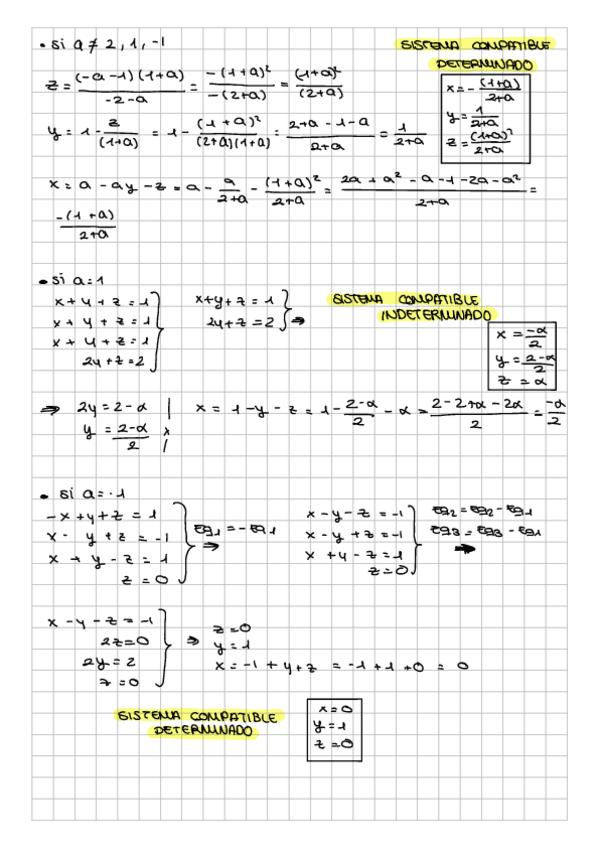 • si a ≠ 2, 1, -1
SISTEMA COMPATIBLE
DETERMINADO
z = (-a-1)(1+a)/(-2-a) = -(1+a)²/-(2+a) = (1+a)²/(2+a)
x = -(1+a)/(2+a)
y = 1/(2+a)
z = (1+a)²/(2+a)
y = 1 - z/(1+a) = 1 - (1+a)²/((2+a)(1+a)) = (2+a-1-a)/(2+a) = 1/(2+a)
x = a - ay - z = a - a/(2+a) - (1+a)²/(2+a) = (2a + a² - a - 1 - 2a - a²)/(2+a) =
-(1+a)/(2+a)
• si a = 1
x + y + z = 1
x + y + z = 1
x + y + z = 1
2y + z = 2
x + y + z = 1
2y + z = 2
⇒
SISTEMA COMPATIBLE
INDETERMINADO
x = -α/2
y = (2-α)/2
z = α
⇒ 2y = 2 - α
y = (2-α)/2
x = 1 - y - z = 1 - (2-α)/2 - α = (2-2+α-2α)/2 = -α/2
• si a = -1
-x + y + z = 1
x - y + z = -1
x + y - z = 1
z = 0
Eq1 = -Eq1
⇒
x - y - z = -1
x - y + z = -1
x + y - z = 1
z = 0
Eq2 = Eq2 - Eq1
Eq3 = Eq3 - Eq1
➔
x - y - z = -1
2z = 0
2y = 2
z = 0
⇒
z = 0
y = 1
x = -1 + y + z = -1 + 1 + 0 = 0
SISTEMA COMPATIBLE
DETERMINADO
x = 0
y = 1
z = 0